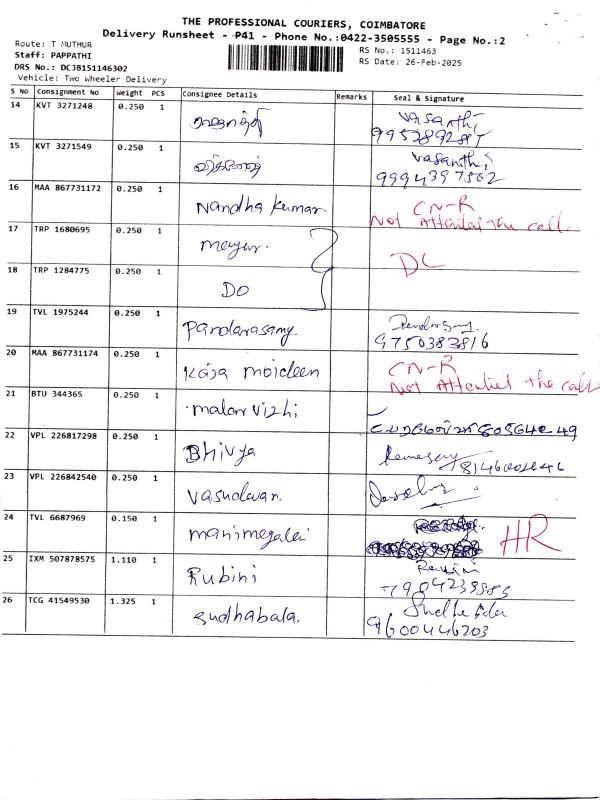 THE PROFESSIONAL COURIERS, COIMBATORE
Delivery Runsheet - P41 - Phone No.:0422-3505555 - Page No.:2
Route: T MUTHUR
Staff: PAPPATHI
DRS No.: DCJB151146302
Vehicle: Two Wheeler Delivery
RS No.: 1511463
RS Date: 26-Feb-2025
S No Consignment No Weight PCS Consignee Details Remarks Seal & Signature
14 KVT 3271248 0.250 1 Vasanthi
15 KVT 3271549 0.250 1 Vasanthi
9994397562
16 MAA 867731172 0.250 1 Nandha kumar CN-R
Not Attended The call
17 TRP 1680695 0.250 1 DL
18 TRP 1284775 0.250 1 DO
19 TVL 1975244 0.250 1 Pandarasamy.
9750383816
20 MAA 867731174 0.250 1 Kaja moideen CN-R
Not Attentied the call
21 BTU 344365 0.250 1 malar vizhi
22 VPL 226817298 0.250 1 Bhivya
23 VPL 226842540 0.250 1 Vasudevan.
24 TVL 6687969 0.150 1 manimegalai HR
25 IXM 507878575 1.110 1 Rubini
26 TCG 41549530 1.325 1 Sudhabala.
9600446203